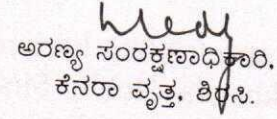 ಅರಣ್ಯ ಸಂರಕ್ಷಣಾಧಿಕಾರಿ,
ಕೆನರಾ ವೃತ್ತ, ಶಿರಸಿ.